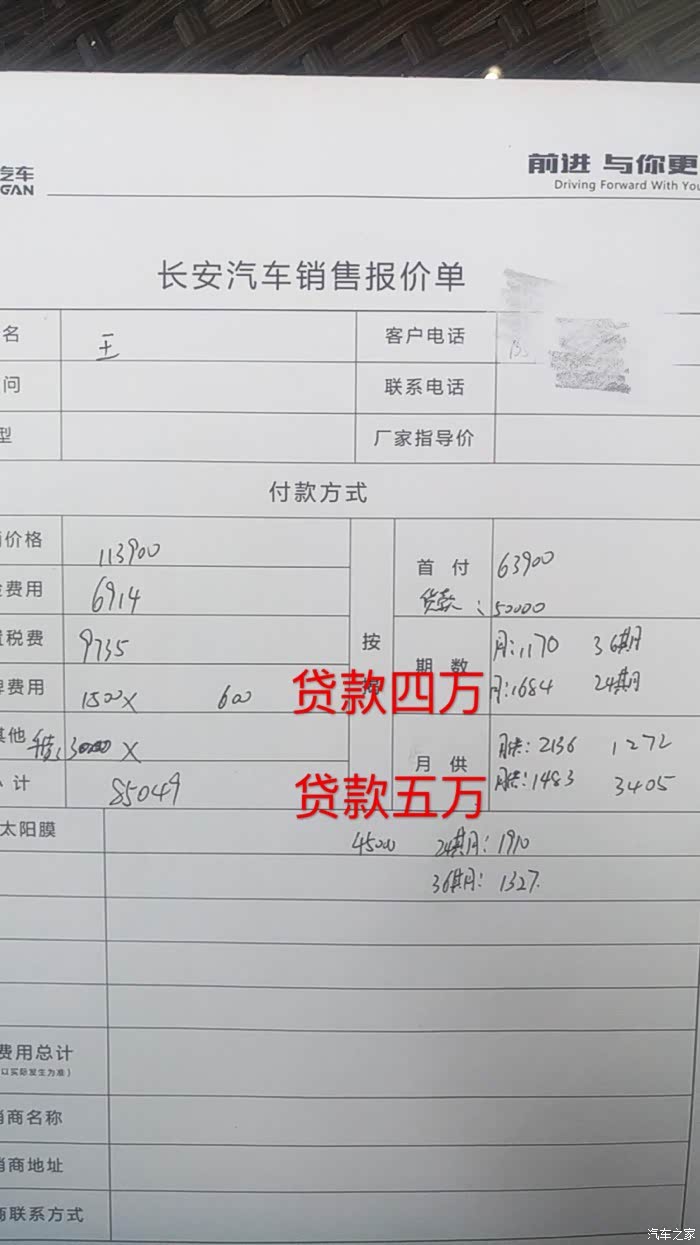 汽车
GAN
前进 与你更
Driving Forward With You
长安汽车销售报价单
名 王 客户电话
问 联系电话
型 厂家指导价
付款方式
价格 113900 首付 63900
费用 6914 贷款: 50000
税费 9735 按 期数 月:1170 36期
费用 1500X 600 贷款四万 月:1684 24期
其他 30000 X 月供 月供: 2136 1272
计 85049 贷款五万 月供: 1483 3405
太阳膜 45000 24期月: 1910
36期月: 1327.
费用总计
以实际发生为准)
销商名称
销商地址
商联系方式
汽车之家